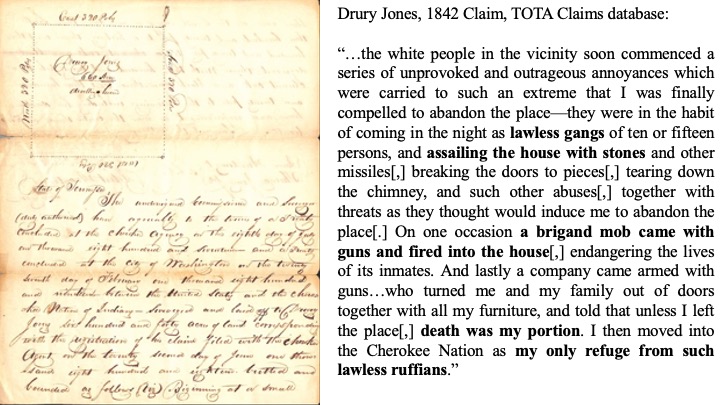 East 320 Poles
Drury Jones
640 Acres
North 320 Poles
State of Tennessee
The undersigned Commissioner and Surveyor
(duly authorised) have agreeably to the terms of a Treaty
concluded at the Cherokee Agency on the eighth day of July
one thousand eight hundred and seventeen and a treaty
concluded at the City of Washington on the twenty
seventh day of February one thousand eight hundred
and nineteen between the United States and the Chero
kee Nation of Indians Surveyed and laid off to Drury
Jones six hundred and forty acres of land corresponding
with the registration of his claim filed with the Cherokee
Agent on the twenty second day of June one thou
sand eight hundred and eighteen butted and
bounded as follows (Viz) Beginning at a small
Drury Jones, 1842 Claim, TOTA Claims database:
“…the white people in the vicinity soon commenced a
series of unprovoked and outrageous annoyances which
were carried to such an extreme that I was finally
compelled to abandon the place—they were in the habit
of coming in the night as lawless gangs of ten or fifteen
persons, and assailing the house with stones and other
missiles[,] breaking the doors to pieces[,] tearing down
the chimney, and such other abuses[,] together with
threats as they thought would induce me to abandon the
place[.] On one occasion a brigand mob came with
guns and fired into the house[,] endangering the lives
of its inmates. And lastly a company came armed with
guns…who turned me and my family out of doors
together with all my furniture, and told that unless I left
the place[,] death was my portion. I then moved into
the Cherokee Nation as my only refuge from such
lawless ruffians.”